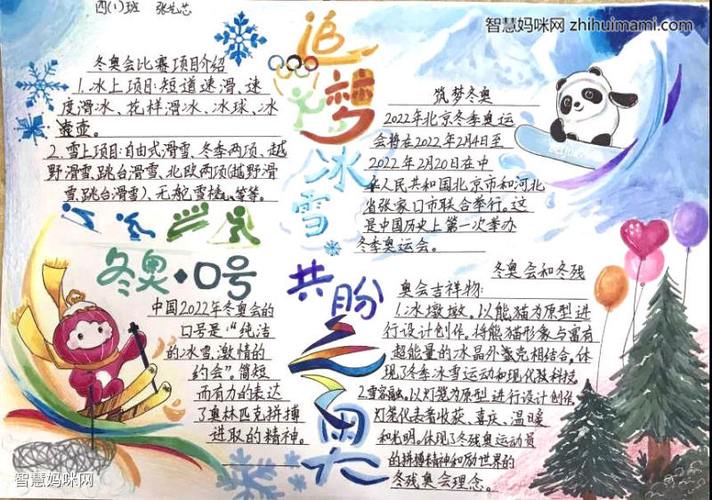 四(1)班 张
智慧妈咪网 zhihuimami.com
追梦冰雪
共盼冬奥
冬奥会比赛项目介绍
1.冰上项目:短道速滑、速
度滑冰、花样滑冰、冰球、冰
壶。
2.雪上项目:自由式滑雪、冬季两项、越
野滑雪、跳台滑雪、北欧两项(越野滑
雪、跳台滑雪)、无舵雪橇、等等。
冬奥·口号
中国2022年冬奥会的
口号是:“纯洁
的冰雪,激情的
约会”。简短
而有力的表达
了奥林匹克拼搏
进取的精神。
筑梦冬奥
2022年北京冬季奥运
会将在2022年2月4日至
2022年2月20日在中
华人民共和国北京市和河北
省张家口市联合举行。这
是中国历史上第一次举办
冬季奥运会。
冬奥会和冬残
奥会吉祥物:
1.冰墩墩。以熊猫为原型进
行设计创作。将熊猫形象与富有
超能量的冰晶外壳相结合。体
现了冬季冰雪运动和现代科技
2.雪容融。以灯笼为原型进行设计创作
灯笼代表着收获、喜庆、温暖
和光明。体现了冬残奥运动员
的拼搏精神和励世界的
冬残奥会理念。
智慧妈咪网